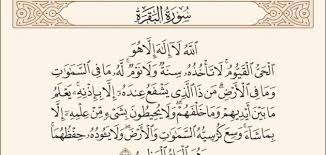 سُورَةُ البَقَرَةِ
اللَّهُ لَآ إِلَٰهَ إِلَّا هُوَ
الْحَىُّ الْقَيُّومُ ۚ لَا تَأْخُذُهُۥ سِنَةٌ وَلَا نَوْمٌ ۚ لَّهُۥ مَا فِى السَّمَٰوَٰتِ
وَمَا فِى الْأَرْضِ ۗ مَن ذَا الَّذِى يَشْفَعُ عِندَهُۥٓ إِلَّا بِإِذْنِهِۦ ۚ يَعْلَمُ
مَا بَيْنَ أَيْدِيهِمْ وَمَا خَلْفَهُمْ ۖ وَلَا يُحِيطُونَ بِشَىْءٍ مِّنْ عِلْمِهِۦٓ إِلَّا
بِمَا شَآءَ ۚ وَسِعَ كُرْسِيُّهُ السَّمَٰوَٰتِ وَالْأَرْضَ ۖ وَلَا يَـُٔودُهُۥ حِفْظُهُمَا ۚ